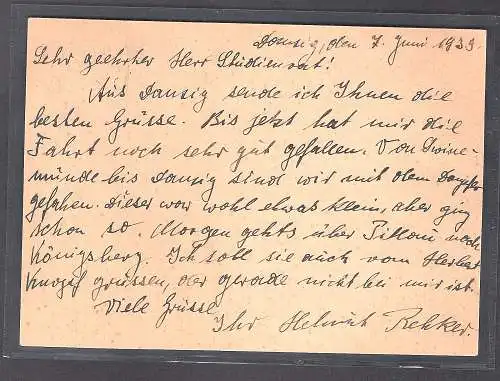 Danzig, den 7. Juni 1939.
Sehr geehrter Herr Studienrat!
Aus Danzig sende ich Ihnen die
besten Grüsse. Bis jetzt hat mir die
Fahrt noch sehr gut gefallen. Von Swine-
münde bis Danzig sind wir mit dem Dampfer
gefahren. Dieser war wohl etwas klein, aber ging
schon so. Morgen gehts über Pillau nach
Königsberg. Ich soll sie auch vom Herbert
grüssen, der gerade nicht bei mir ist.
Viele Grüsse
Ihr Helmut